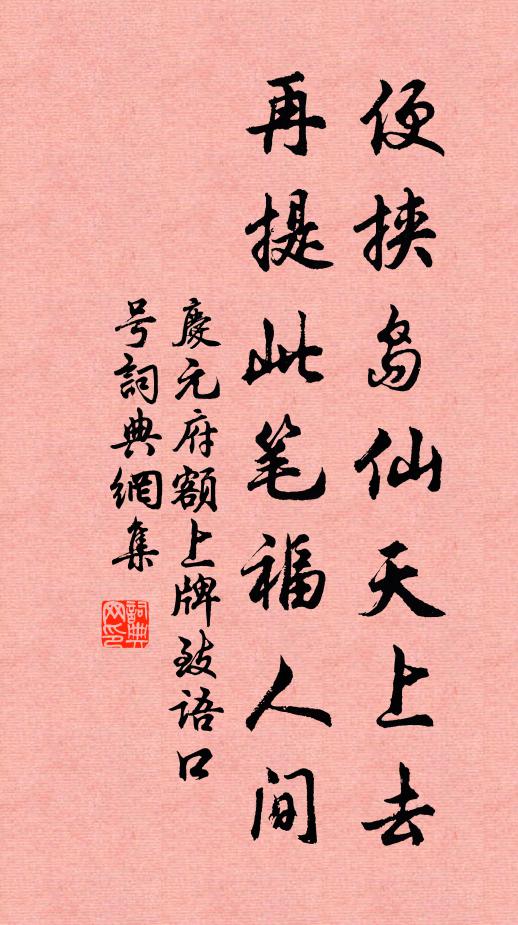 便挟岛仙天上去
再提此笔福人间
慶元府額上牌致語口
号詞典網集
詞典网印